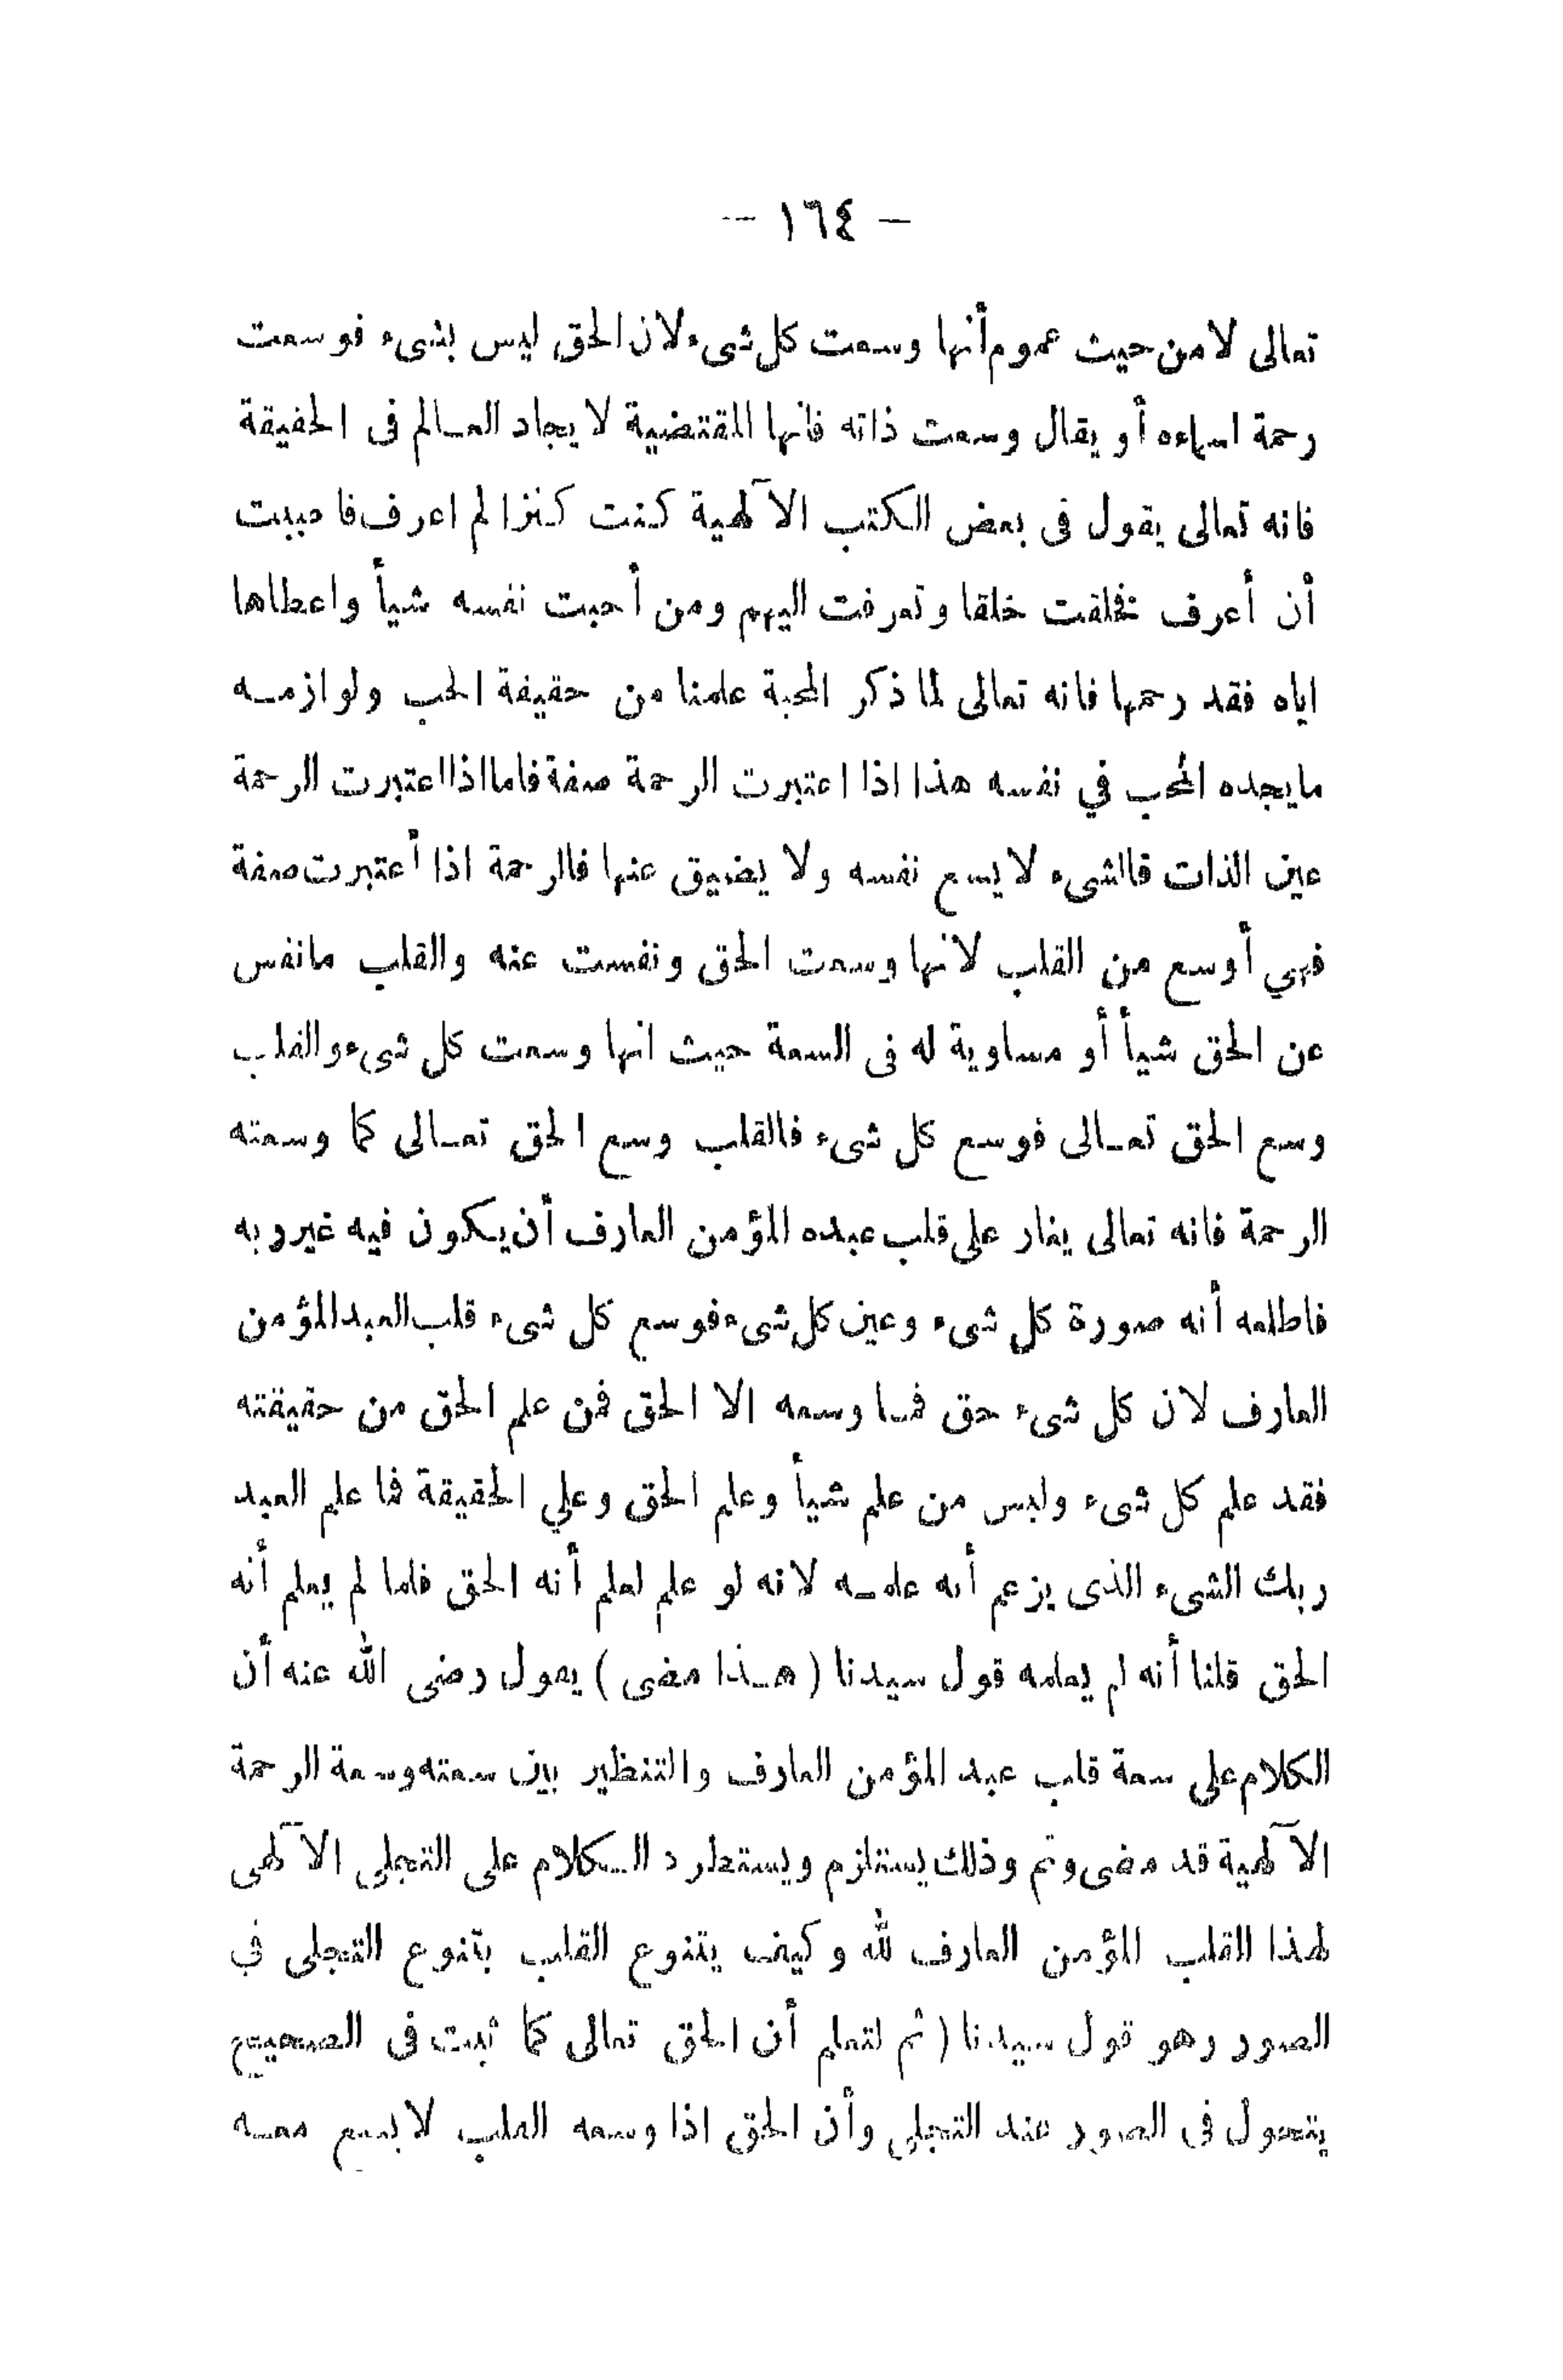 — ١٦٤ —
تعالى لا من حيث عموم أنها وسعت كل شىء لان الحق ليس بشىء فوسعت
رحمة اسماءه أو يقال وسعت ذاته فانها المقتضية لايجاد العالم فى الحقيقة
فانه تعالى يقول فى بعض الكتب الآلهية كنت كنزا لم اعرف فاحببت
أن أعرف فخلقت خلقا وتعرفت اليهم ومن أحبت نفسه شيأ واعطاها
اياه فقد رحمها فانه تعالى لما ذكر المحبة علمنا من حقيقة الحب ولوازمه
مايجده المحب في نفسه هذا اذا اعتبرت الرحمة صفة فاما اذا اعتبرت الرحمة
عين الذات فالشىء لايسع نفسه ولا يضيق عنها فالرحمة اذا أعتبرت صفة
فهي أوسع من القلب لانها وسعت الحق ونفست عنه والقلب مانفس
عن الحق شيأ أو مساوية له فى السعة حيث انها وسعت كل شىء والقلب
وسع الحق تعالى فوسع كل شىء فالقلب وسع الحق تعالى كما وسعته
الرحمة فانه تعالى يغار على قلب عبده المؤمن العارف أن يكون فيه غير ربه
فاطلعه أنه صورة كل شىء وعين كل شىء فوسع كل شىء قلب العبد المؤمن
العارف لان كل شىء حق فما وسعه الا الحق فمن علم الحق من حقيقته
فقد علم كل شىء وليس من علم شيأ وعلم الحق وعلي الحقيقة فما علم العبد
ربك الشىء الذى يزعم أنه علمه لانه لو علم لعلم أنه الحق فلما لم يعلم أنه
الحق قلنا أنه لم يعلمه قول سيدنا (هذا مضى) يقول رضى الله عنه أن
الكلام على سعة قلب عبد المؤمن العارف والتنظير بين سعته وسعة الرحمة
الآلهية قد مضى وتم وذلك يستلزم ويستطرد الكلام على التجلى الآلهى
لهذا القلب المؤمن العارف لله وكيف يتنوع القلب بتنوع التجلى في
الصور وهو قول سيدنا (ثم لتعلم أن الحق تعالى كما ثبت فى الصحيح
يتحول فى الصور عند التجلى وأن الحق اذا وسعه القلب لايسع معه